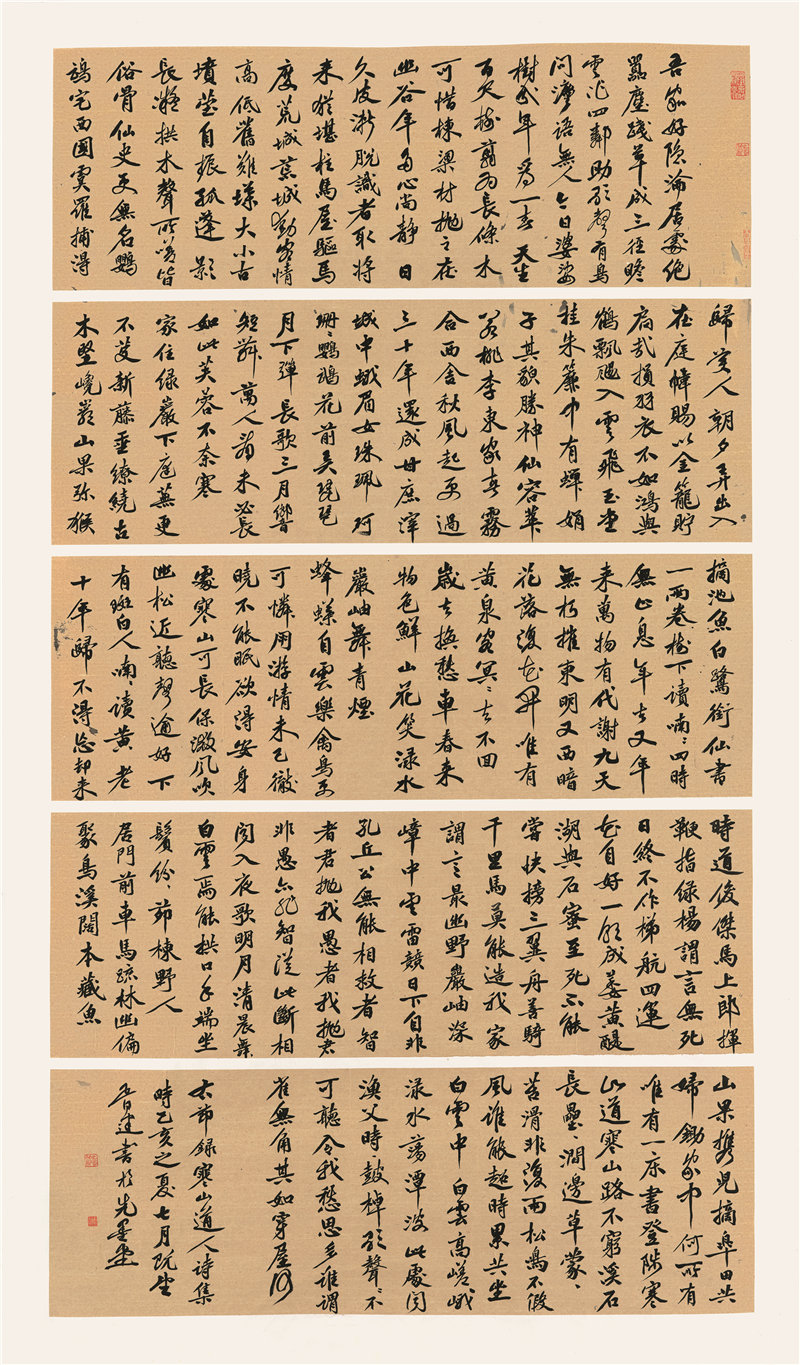 吾家好隐淪居處絶
嚻塵踐草成三徑瞻
雲作四鄰助歌聲有鳥
問法語無人今日娑婆
樹幾年為一春天生
百尺樹剪為長條木
可惜棟梁材抛之在
幽谷年多心尚静日
久皮漸脱識者取将
来猶堪柱馬屋驅馬
度荒城荒城動客情
高低舊雉堞大小古
墳塋自振孤蓬影
長凝拱木聲所嗟皆
俗骨仙史更無名鸚
鵡宅西國虞羅捕得
歸美人朝夕弄出入
在庭幃賜以金籠貯
扃哉損羽衣不如鴻與
鶴飄颺入雲飛玉堂
挂朱簾中有嬋娟
子其貌勝神仙容華
若桃李東家春霧
合西舍秋風起更過
三十年還成甘蔗滓
城中蛾眉女珠珮珂
珊珊鸚鵡花前弄琵琶
月下彈長歌三月響
短舞萬人看未必長
如此芙蓉不奈寒
家住緑巖下庭蕪更
不芟新藤垂繚繞古
木竪巉嵓山果弥猴
摘池魚白鷺銜仙書
一兩卷樹下讀喃喃四時
無止息年去又年
来萬物有代謝九天
無朽摧東明又西暗
花落復花開唯有
黄泉客冥冥去不回
歲去换愁年春来
物色鮮山花笑渌水
巖岫舞青煙
蜂蝶自云樂禽鳥更
可憐朋游情未已徹
曉不能眠欲得安身
處寒山可長保微風吹
幽松近聽聲逾好下
有斑白人喃喃讀黄老
十年歸不得忘却来
時道俊傑馬上郎揮
鞭指緑楊謂言無死
日終不作梯航四運
花自好一朝成萎黄醍
醐與石蜜至死不能
嘗快搒三翼舟善騎
千里馬莫能造我家
謂言最幽野巖岫深
嶂中雲雷竟日下自非
孔丘公無能相救者智
者君抛我愚者我抛君
非愚亦非智從此斷相
聞入夜歌明月清晨舞
白雲焉能拱口手端坐
鬢紛紛茆棟野人
居門前車馬疏林幽偏
聚鳥溪闊本藏魚
山果携兒摘皋田共
婦鋤家中何所有
唯有一床書登陟寒
山道寒山路不窮溪石
長壘壘澗邊草蒙蒙
苔滑非渡雨松鳴不假
風誰能超時累共坐
白雲中白雲高嵯峨
渌水蕩潭波此處聞
漁父時鼓棹歌聲聲不
可聽令我愁思多誰謂
雀無角其如穿屋何
右節録寒山道人詩集
時乙亥之夏七月既望